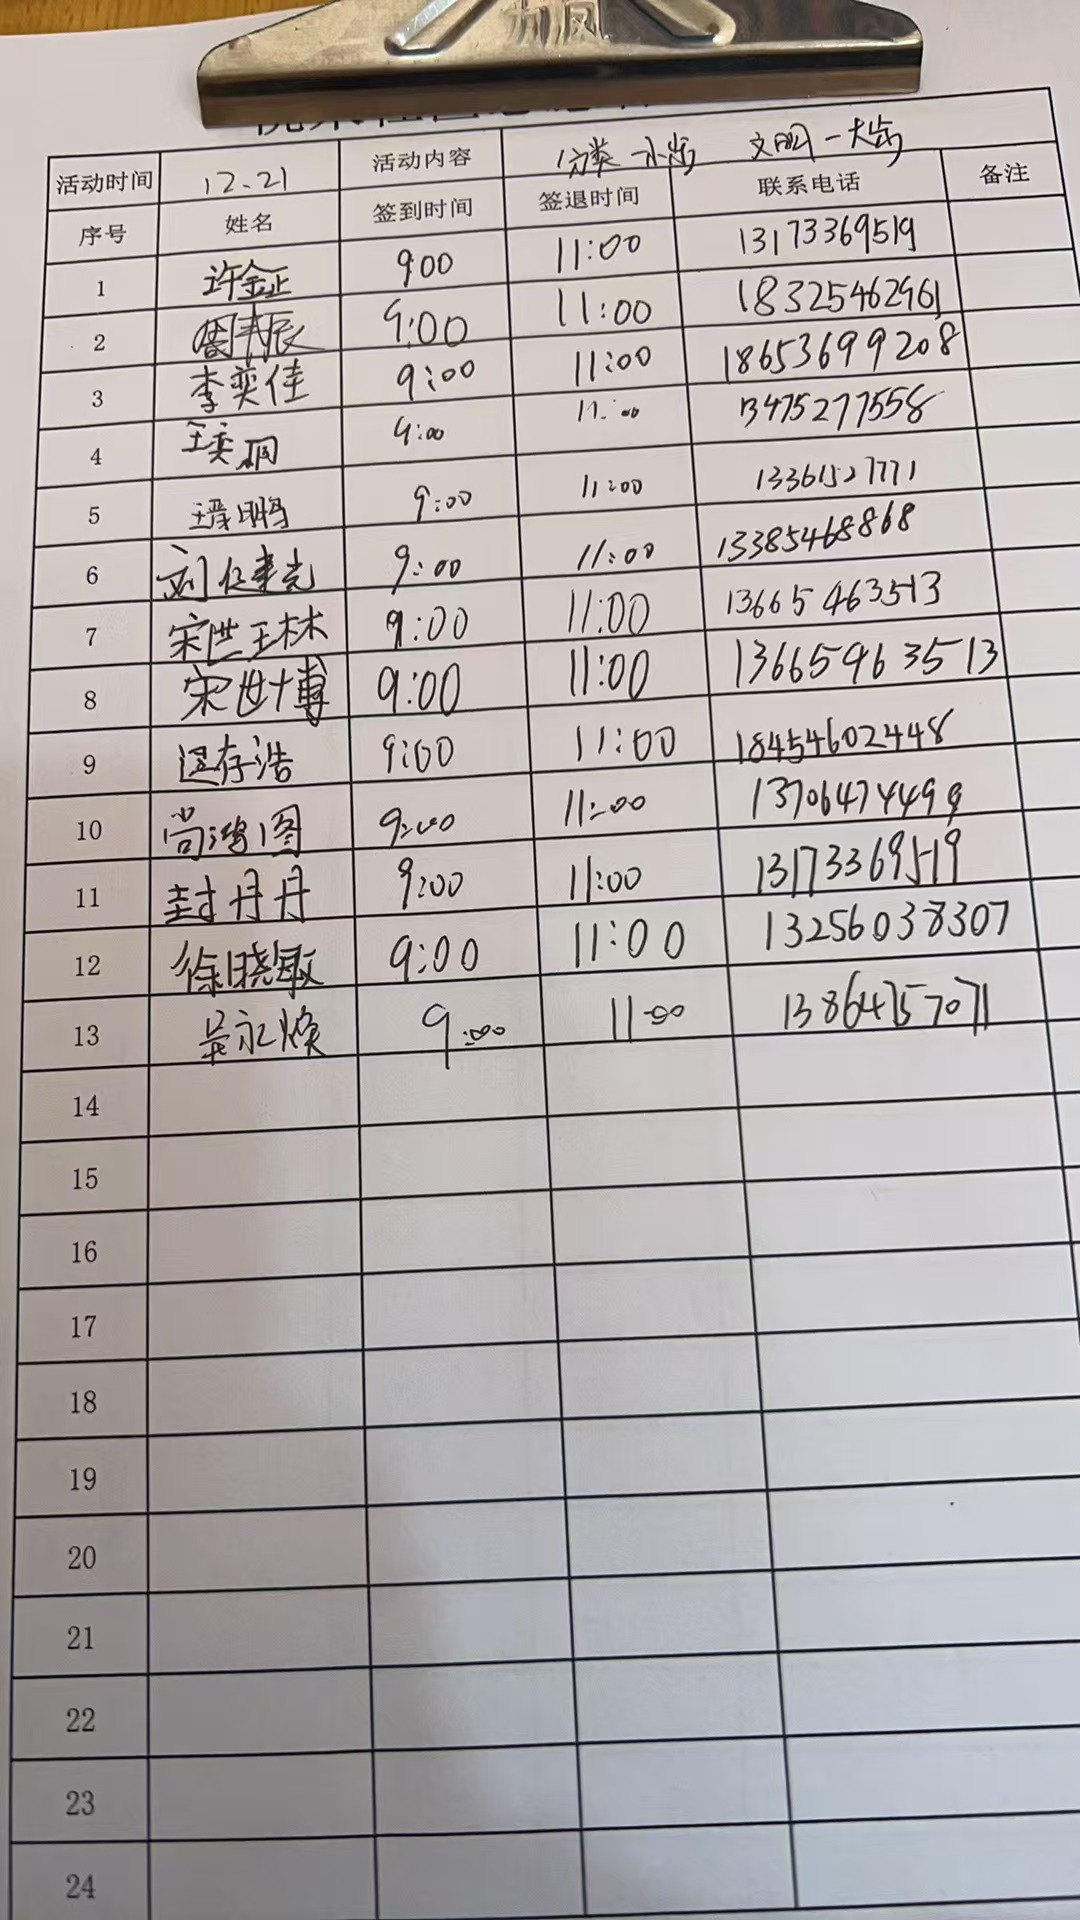 力凤
活动时间 12.21 活动内容 分类一小步 文明一大步
序号 姓名 签到时间 签退时间 联系电话 备注
1 许金正 9:00 11:00 13173369519
2 9:00 11:00 18325462961
3 李奕佳 9:00 11:00 18653699208
4 王奕珂 9:00 11:00 13475277558
5 9:00 11:00 13361527771
6 刘 9:00 11:00 13385468868
7 宋世琳 9:00 11:00 13665463513
8 宋世博 9:00 11:00 13665963513
9 存浩 9:00 11:00 18454602448
10 尚鸿图 9:00 11:00 13706474499
11 封丹丹 9:00 11:00 13173369519
12 徐晓敏 9:00 11:00 13256038307
13 吴永焕 9:00 11:00 13864757071
14
15
16
17
18
19
20
21
22
23
24